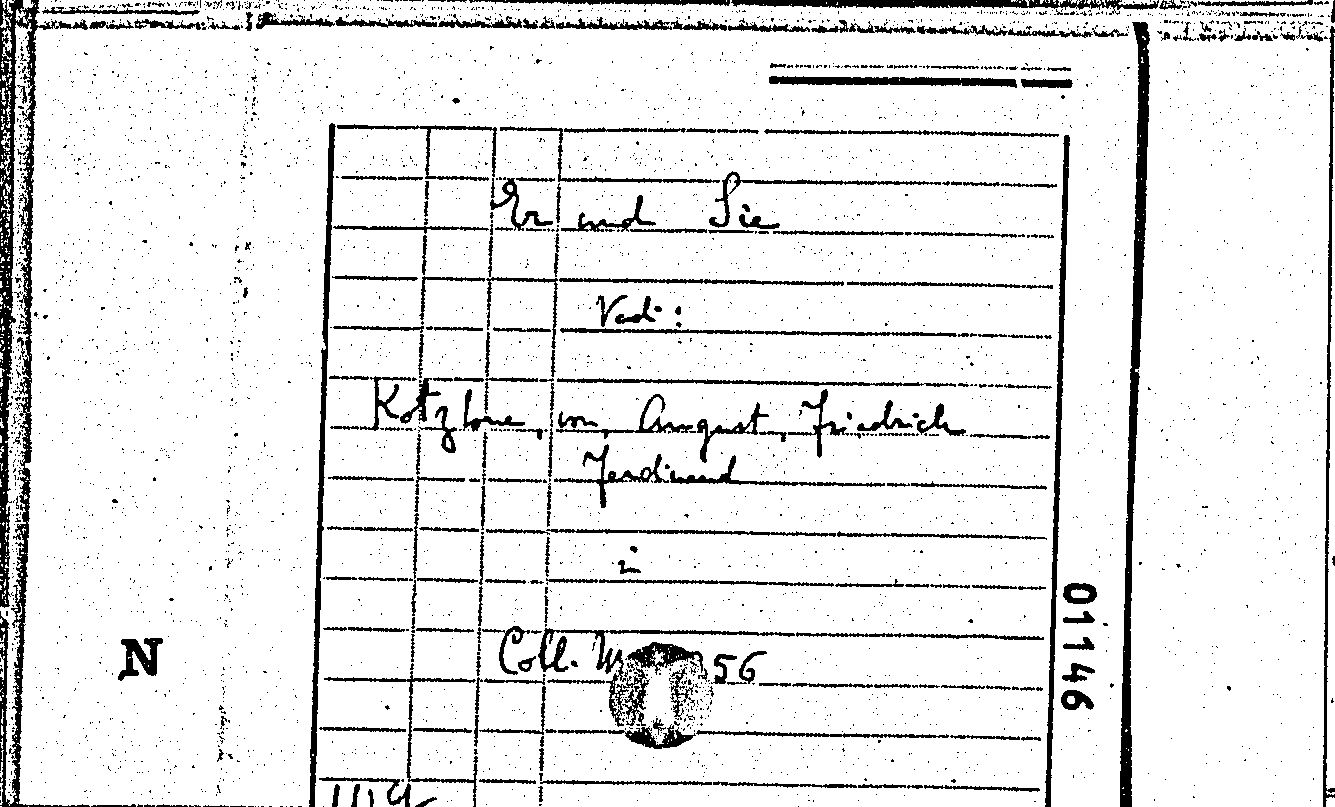 Er und Sie
Vedi:
Kotzbue, von, August, Friedrich
Ferdinand
in
Coll. 56
01146
N